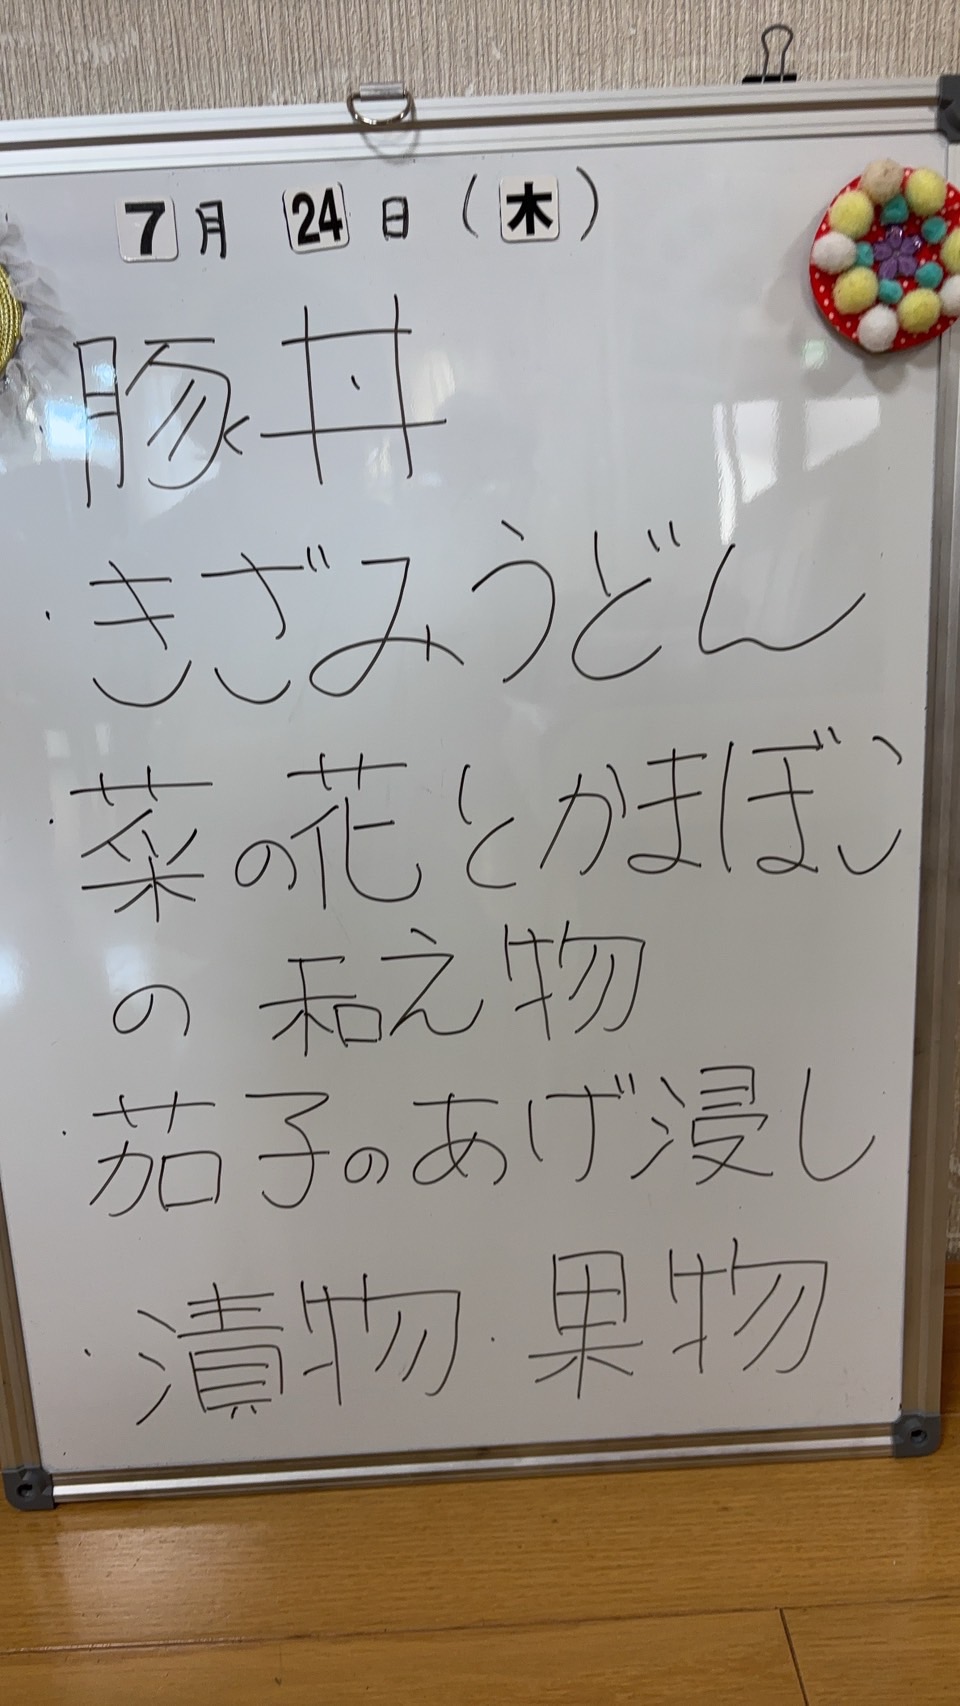 7月 24日 (木)
・豚丼
・きざみうどん
・菜の花とかまぼこ
の 和え物
・茄子のあげ浸し
・漬物・果物